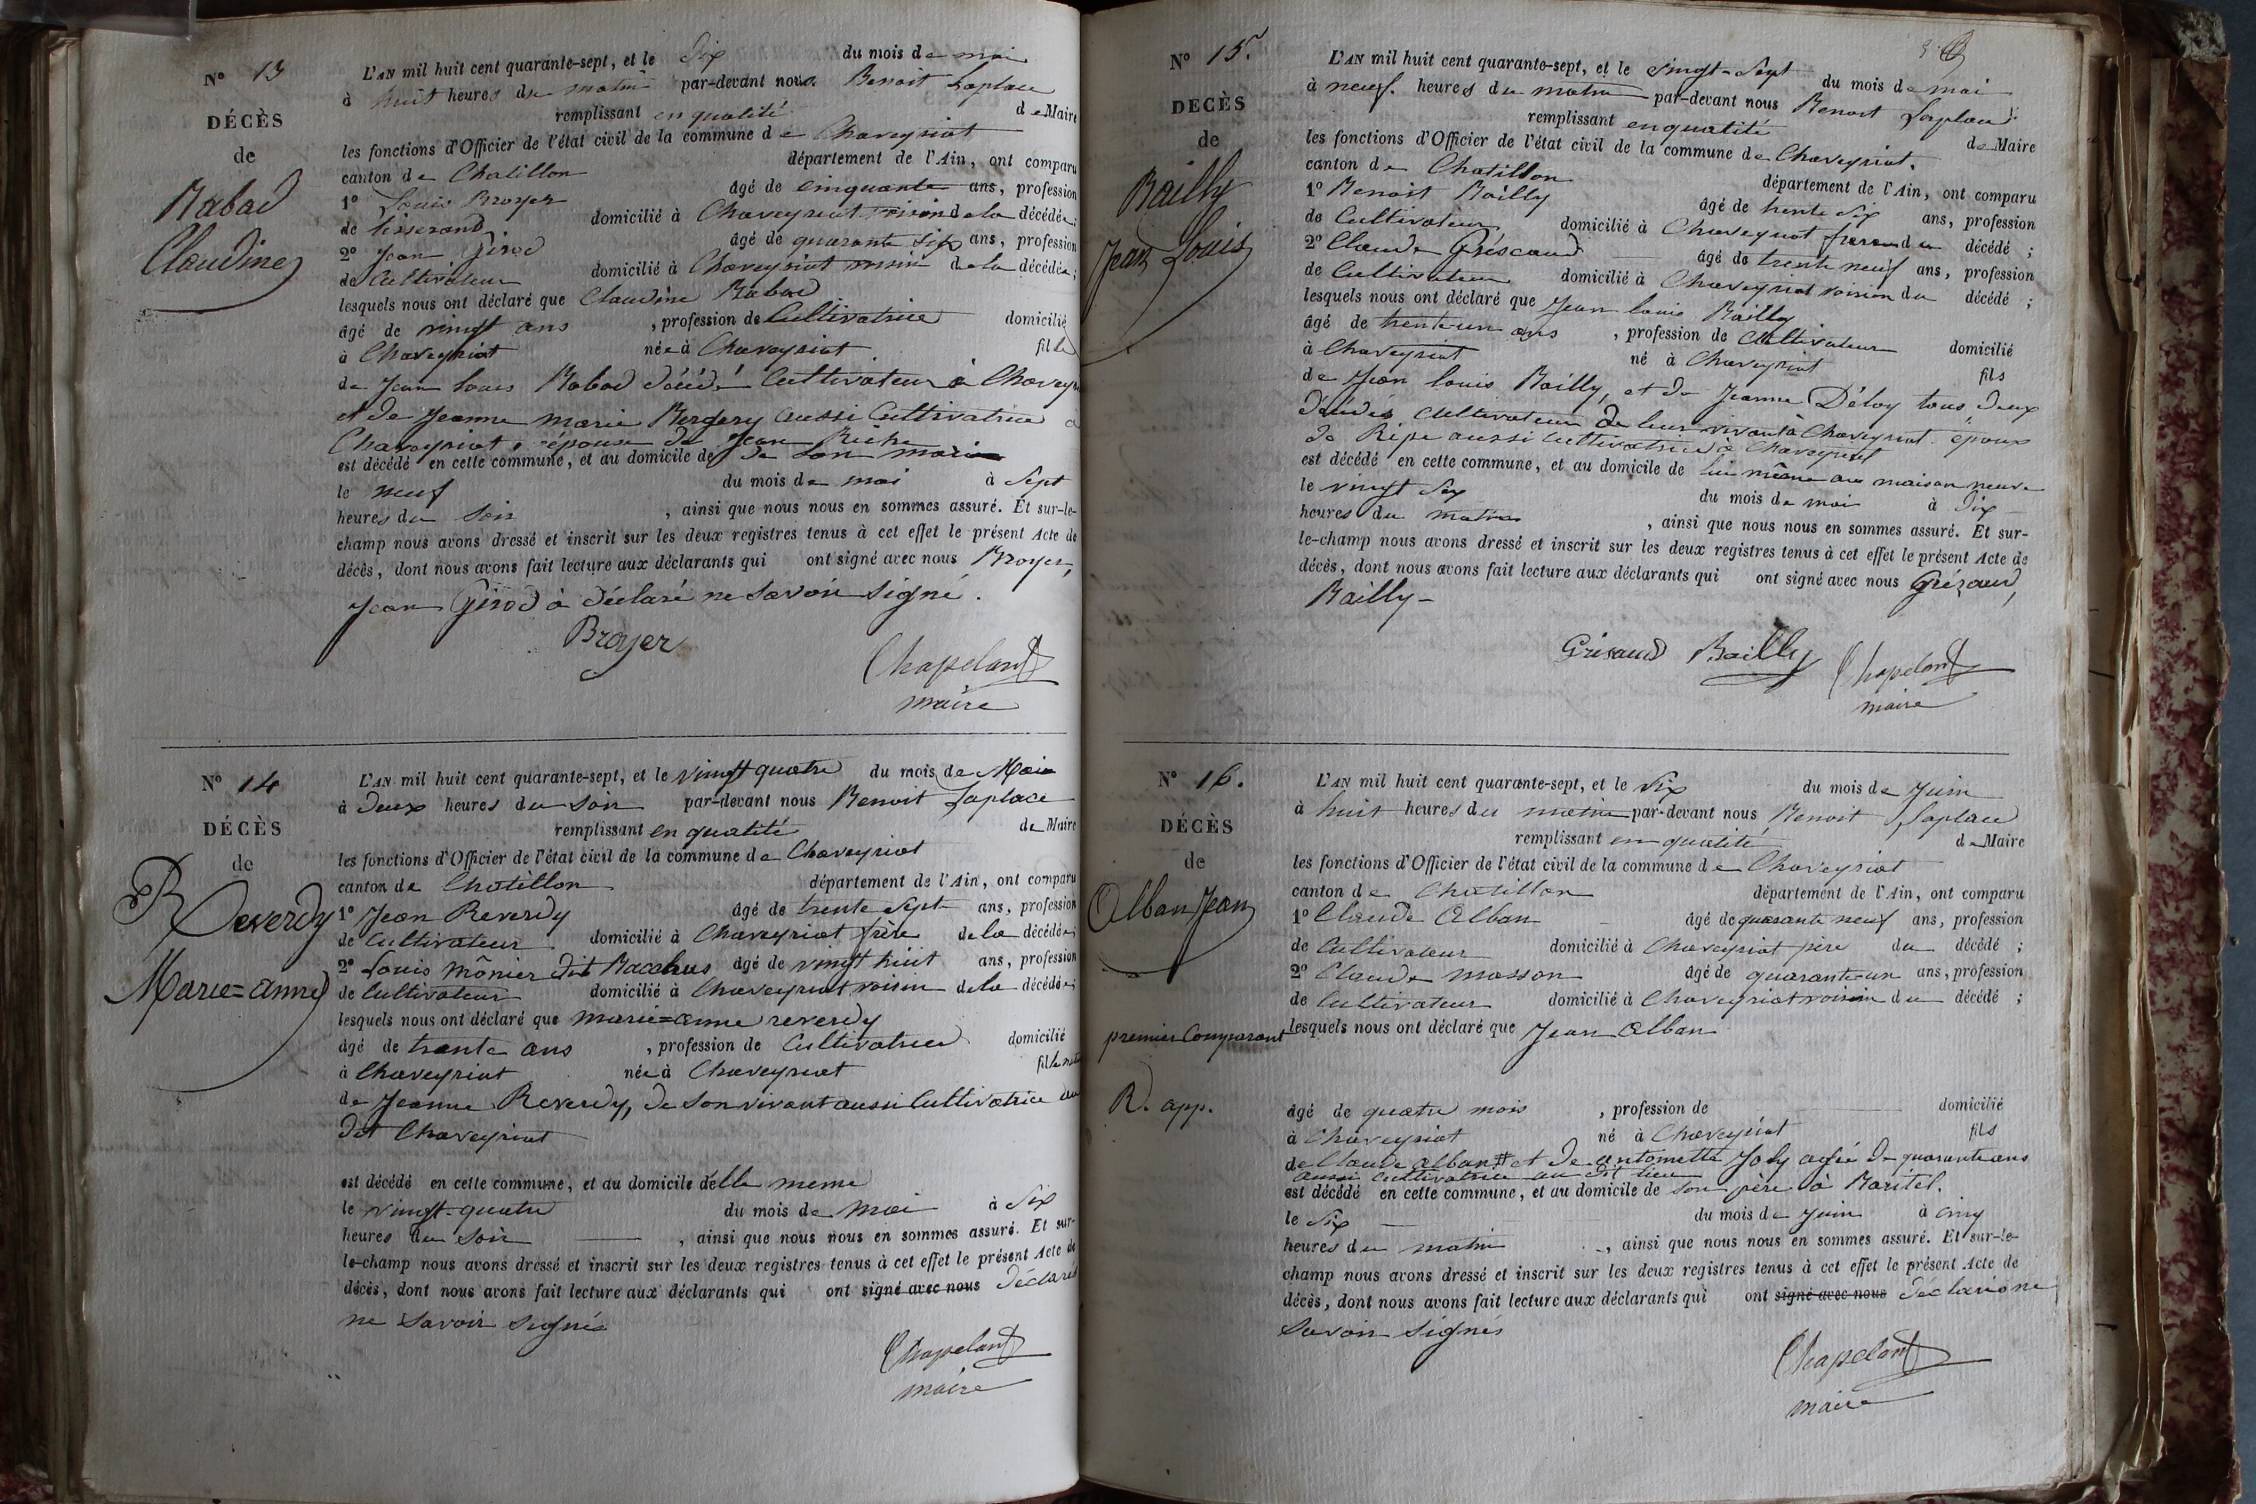 N° 13
DÉCÈS
de
Rabad
Claudine
L'AN mil huit cent quarante-sept, et le dix du mois de mai
à huit heures du matin par-devant nous Benoit Laplace
remplissant en qualité de Maire
les fonctions d'Officier de l'état civil de la commune de Chaveyriat
canton de Chatillon département de l'Ain, ont comparu
1° Louis Broyer âgé de cinquante ans, profession
de tisserand domicilié à Chaveyriat voisin de la décédée;
2° Jean Girod âgé de quarante six ans, profession
de Cultivateur domicilié à Chaveyriat voisin de la décédée;
lesquels nous ont déclaré que Claudine Rabad
âgé de vingt ans , profession de Cultivatrice domicilié
à Chaveyriat née à Chaveyriat fille
de Jean Louis Rabad décédé Cultivateur à Chavey
et de Jeanne Marie Bergery aussi Cultivatrice à
Chaveyriat, épouse de Jean Riche
est décédé en cette commune, et au domicile de de son mari
le neuf du mois de mai à Sept
heures du Soir , ainsi que nous nous en sommes assuré. Et sur-le-
champ nous avons dressé et inscrit sur les deux registres tenus à cet effet le présent Acte de
décès, dont nous avons fait lecture aux déclarants qui ont signé avec nous Broyer,
Jean Girod à déclaré ne Savoir Signé.
Broyer
Chapeland
maire
N° 14
DÉCÈS
de
Reverdy
Marie=anne
L'AN mil huit cent quarante-sept, et le vingt quatre du mois de Mai
à deux heures du soir par-devant nous Benoit Laplace
remplissant en qualité de Maire
les fonctions d'Officier de l'état civil de la commune de Chaveyriat
canton de Chatillon département de l'Ain, ont comparu
1° Jean Reverdy âgé de trente Sept ans, profession
de Cultivateur domicilié à Chaveyriat frère de la décédée;
2° Louis Mônier dit Bacchus âgé de vingt huit ans, profession
de Cultivateur domicilié à Chaveyriat voisin de la décédée;
lesquels nous ont déclaré que marie=anne reverdy
âgé de trente ans , profession de Cultivatrice domicilié
à Chaveyriat née à Chaveyriat fille
de Jeanne Reverdy, de Son vivant aussi Cultivatrice au
dit Chaveyriat
est décédé en cette commune, et au domicile d'elle meme
le vingt-quatre du mois de Mai à Six
heures du Soir , ainsi que nous nous en sommes assuré. Et sur-
le-champ nous avons dressé et inscrit sur les deux registres tenus à cet effet le présent Acte de
décès, dont nous avons fait lecture aux déclarants qui ont signé avec nous déclarés
ne Savoir Signés
Chapeland
maire
N° 15.
DECÈS
de
Bailly
Jean Louis
L'AN mil huit cent quarante-sept, et le vingt-Sept du mois de mai
à neuf. heures du matin par-devant nous Benoit Laplace
remplissant en qualité de Maire
les fonctions d'Officier de l'état civil de la commune de Chaveyriat.
canton de Chatillon département de l'Ain, ont comparu
1° Benoit Bailly âgé de trente Six ans, profession
de Cultivateur domicilié à Chaveyriat frere du décédé ;
2° Claude Gréscaud âgé de trente neuf ans, profession
de Cultivateur domicilié à Chaveyriat voisin du décédé ;
lesquels nous ont déclaré que Jean Louis Bailly
âgé de trente-un ans , profession de Cultivateur domicilié
à Chaveyriat né à Chaveyriat fils
de Jean Louis Bailly, et de Jeanne Déloy tous deux
décédés cultivateur de leur vivant à Chaveyriat époux
de Ripe aussi cultivatrice à Chaveyriat
est décédé en cette commune, et au domicile de lui même aux maison neuve
le vingt Six du mois de mai à Dix
heures du matin , ainsi que nous nous en sommes assuré. Et sur-
le-champ nous avons dressé et inscrit sur les deux registres tenus à cet effet le présent Acte de
décès, dont nous avons fait lecture aux déclarants qui ont signé avec nous Grésaud,
Bailly-
Grésaud Bailly Chapeland
maire
N° 16.
DÉCÈS
de
Alban Jean
premier Comparant
R. app.
L'AN mil huit cent quarante-sept, et le Six du mois de Juin
à huit heures du matin par-devant nous Benoit Laplace
remplissant en qualité de Maire
les fonctions d'Officier de l'état civil de la commune de Chaveyriat
canton de Chatillon département de l'Ain, ont comparu
1° Claude Alban âgé de quarante neuf ans, profession
de Cultivateur domicilié à Chaveyriat père du décédé ;
2° Claude Masson âgé de quarante-un ans, profession
de Cultivateur domicilié à Chaveyriat voisin du décédé ;
lesquels nous ont déclaré que Jean Alban
âgé de quatre mois , profession de domicilié
à Chaveyriat né à Chaveyriat fils
de Claude Alban # et de antoinette Joly agée de quarante ans
aussi Cultivatrice au dit lieu
est décédé en cette commune, et au domicile de son père à Baritel.
le Six du mois de Juin à cinq
heures du matin , ainsi que nous nous en sommes assuré. Et sur-le-
champ nous avons dressé et inscrit sur les deux registres tenus à cet effet le présent Acte de
décès, dont nous avons fait lecture aux déclarants qui ont signé avec nous déclaré ne
Savoir Signés
Chapeland
maire